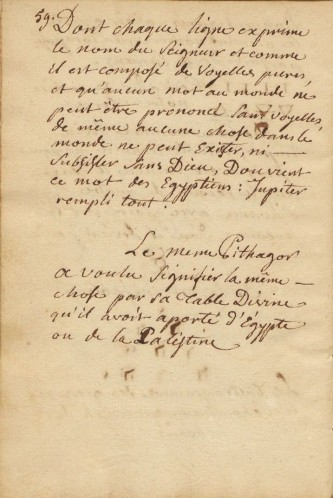 59. Dont chaque ligne exprime
le nom du Seigneur et comme
il est composé de Voyelles pures,
et qu'aucun mot au monde ne
peut être prononcé sans voyelles,
de même aucune chose dans le
monde ne peut Exister, ni
Subsister Sans Dieu, Dou vient
ce mot des Egyptiens: Jupiter
rempli tout.
Le meme Pithagor
a voulu Signifier la même
chose par sa table Divine
qu'il avoit aporté d'Égypte
ou de la Palestine